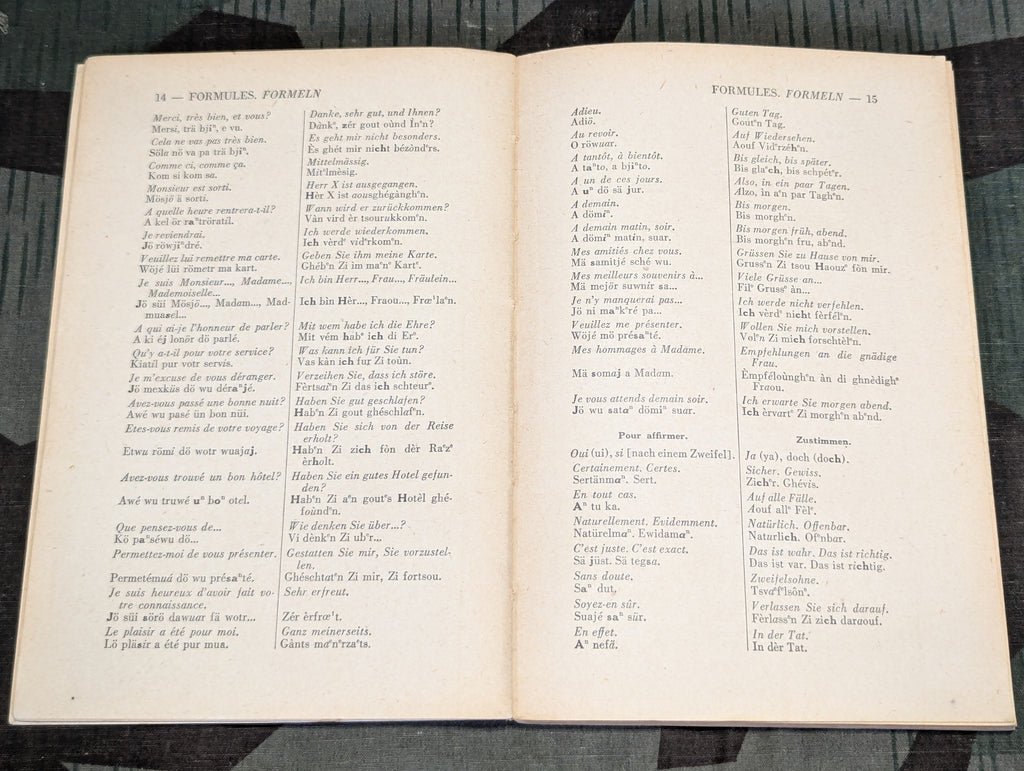 14 — FORMULES. FORMELN
Merci, très bien, et vous?
Mersi, trä bjiⁿ, e vu.
Cela ne vas pas très bien.
Söla nö va pa trä bjiⁿ.
Comme ci, comme ça.
Kom si kom sa.
Monsieur est sorti.
Mösjö ä sorti.
A quelle heure rentrera-t-il?
A kel ör raⁿtröratil.
Je reviendrai.
Jö röwjiⁿdré.
Veuillez lui remettre ma carte.
Wöjé lüi römetr ma kart.
Je suis Monsieur..., Madame...,
Mademoiselle...
Jö süi Mösjö..., Madam..., Mad-
muasel...
A qui ai-je l'honneur de parler?
A ki éj lonör dö parlé.
Qu'y a-t-il pour votre service?
Kiatil pur votr servis.
Je m'excuse de vous déranger.
Jö mexküs dö wu déraⁿjé.
Avez-vous passé une bonne nuit?
Awé wu pasé ün bon nüi.
Etes-vous remis de votre voyage?
Etwu römi dö wotr wuajaj.
Avez-vous trouvé un bon hôtel?
Awé wu truwé uⁿ boⁿ otel.
Que pensez-vous de...
Kö paⁿséwu dö...
Permettez-moi de vous présenter.
Permetémuá dö wu présaⁿté.
Je suis heureux d'avoir fait vo-
tre connaissance.
Jö süi sörö dawuar fä wotr...
Le plaisir a été pour moi.
Lö pläsir a été pur mua.
Danke, sehr gut, und Ihnen?
Dànkᵉ, zér gout oùnd Inᵉn?
Es geht mir nicht besonders.
Ès ghét mir nicht bézòndᵉrs.
Mittelmässig.
Mitᵉlmèsig.
Herr X ist ausgegangen.
Hèr X ist aousghégànghᵉn.
Wann wird er zurückkommen?
Vàn vird èr tsourukkomᵉn.
Ich werde wiederkommen.
Ich vèrdᵉ vidᵉrkomᵉn.
Geben Sie ihm meine Karte.
Ghébᵉn Zi ìm maⁱnᵉ Kartᵉ.
Ich bin Herr..., Frau..., Fräulein...
Ich bìn Hèr..., Fraou..., Frœⁱlaⁱn.
Mit wem habe ich die Ehre?
Mit vém habᵉ ich di Erᵉ.
Was kann ich für Sie tun?
Vas kàn ich fur Zi toùn.
Verzeihen Sie, dass ich störe.
Fèrtsaⁱᵉn Zi das ich schteurᵉ.
Haben Sie gut geschlafen?
Habᵉn Zi gout ghéschlafᵉn.
Haben Sie sich von der Reise
erholt?
Habᵉn Zi zich fòn dèr Raⁱzᵉ
èrholt.
Haben Sie ein gutes Hotel gefun-
den?
Habᵉn Zi aⁱn goutᵉs Hotèl ghé-
foùndᵉn.
Wie denken Sie über...?
Vi dènkᵉn Zi ubᵉr...
Gestatten Sie mir, Sie vorzustel-
len.
Ghéschtatᵉn Zi mir, Zi fortsou.
Sehr erfreut.
Zér èrfrœⁱt.
Ganz meinerseits.
Gànts maⁱnᵉrzaⁱts.
FORMULES. FORMELN — 15
Adieu.
Adiö.
Au revoir.
O röwuar.
A tantôt, à bientôt.
A taⁿto, a bjiⁿto.
A un de ces jours.
A uⁿ dö sä jur.
A demain.
A dömiⁿ.
A demain matin, soir.
A dömiⁿ matin, suar.
Mes amitiés chez vous.
Mä samitjé sché wu.
Mes meilleurs souvenirs à...
Mä mejör suwnir sa...
Je n'y manquerai pas...
Jö ni maⁿkᵉré pa...
Veuillez me présenter.
Wöjé mö présaⁿté.
Mes hommages à Madame.
Mä somaj a Madam.
Je vous attends demain soir.
Jö wu sataⁿ dömiⁿ suar.
Pour affirmer.
Oui (ui), si [nach einem Zweifel].
Certainement. Certes.
Sertänmaⁿ. Sert.
En tout cas.
Aⁿ tu ka.
Naturellement. Evidemment.
Natürelmaⁿ. Ewidamaⁿ.
C'est juste. C'est exact.
Sä jüst. Sä tegsa.
Sans doute.
Saⁿ dut.
Soyez-en sûr.
Suajé saⁿ sür.
En effet.
Aⁿ nefä.
Guten Tag.
Goutᵉn Tag.
Auf Wiedersehen.
Aouf Vidᵉrzéhᵉn.
Bis gleich, bis später.
Bis glaⁱch, bis schpétᵉr.
Also, in ein paar Tagen.
Alzo, in aⁱn par Taghᵉn.
Bis morgen.
Bis morghᵉn.
Bis morgen früh, abend.
Bis morghᵉn fru, abᵉnd.
Grüssen Sie zu Hause von mir.
Grussᵉn Zi tsou Haouzᵉ fòn mir.
Viele Grüsse an...
Filᵉ Grussᵉ àn...
Ich werde nicht verfehlen.
Ich vèrdᵉ nicht fèrfélᵉn.
Wollen Sie mich vorstellen.
Volᵉn Zi mich forschtèlᵉn.
Empfehlungen an die gnädige
Frau.
Èmpféloùnghᵉn àn di ghnèdighᵉ
Fraou.
Ich erwarte Sie morgen abend.
Ich èrvartᵉ Zi morghᵉn abᵉnd.
Zustimmen.
Ja (ya), doch (doch).
Sicher. Gewiss.
Zichᵉr. Ghévis.
Auf alle Fälle.
Aouf allᵉ Fèlᵉ.
Natürlich. Offenbar.
Naturlich. Ofᵉnbar.
Das ist wahr. Das ist richtig.
Das ist var. Das ist richtig.
Zweifelsohne.
Tsvaⁱfᵉlsônᵉ.
Verlassen Sie sich darauf.
Fèrlassᵉn Zi zich daraouf.
In der Tat.
In dèr Tat.